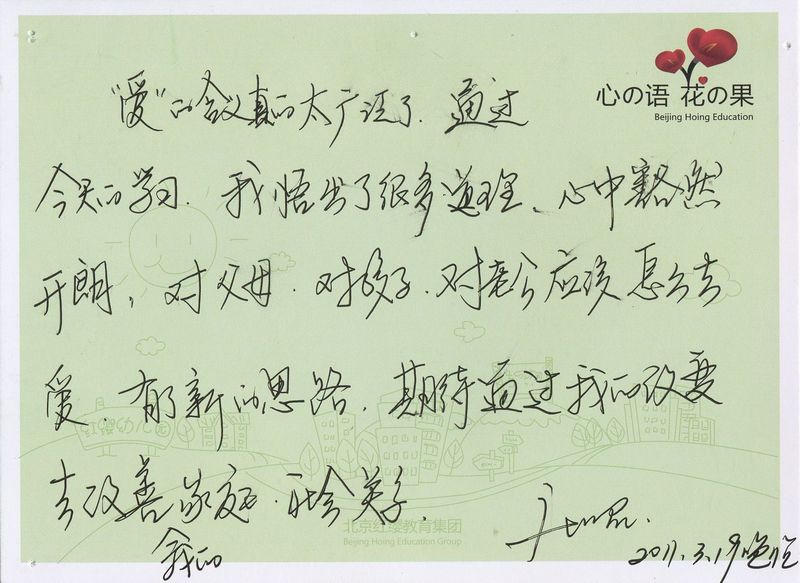 心の语 花の果
Beijing Hoing Education
“爱”的含义真的太广泛了.通过
今天的学习.我悟出了很多道理、心中豁然
开朗,对父母.对孩子.对老公应该怎么去
爱.有新的思路.期待通过我的改变
去改善家庭.
我的
红缨幼儿园
北京红缨教育集团
Beijing Hoing Education Group
2011.3.19晚